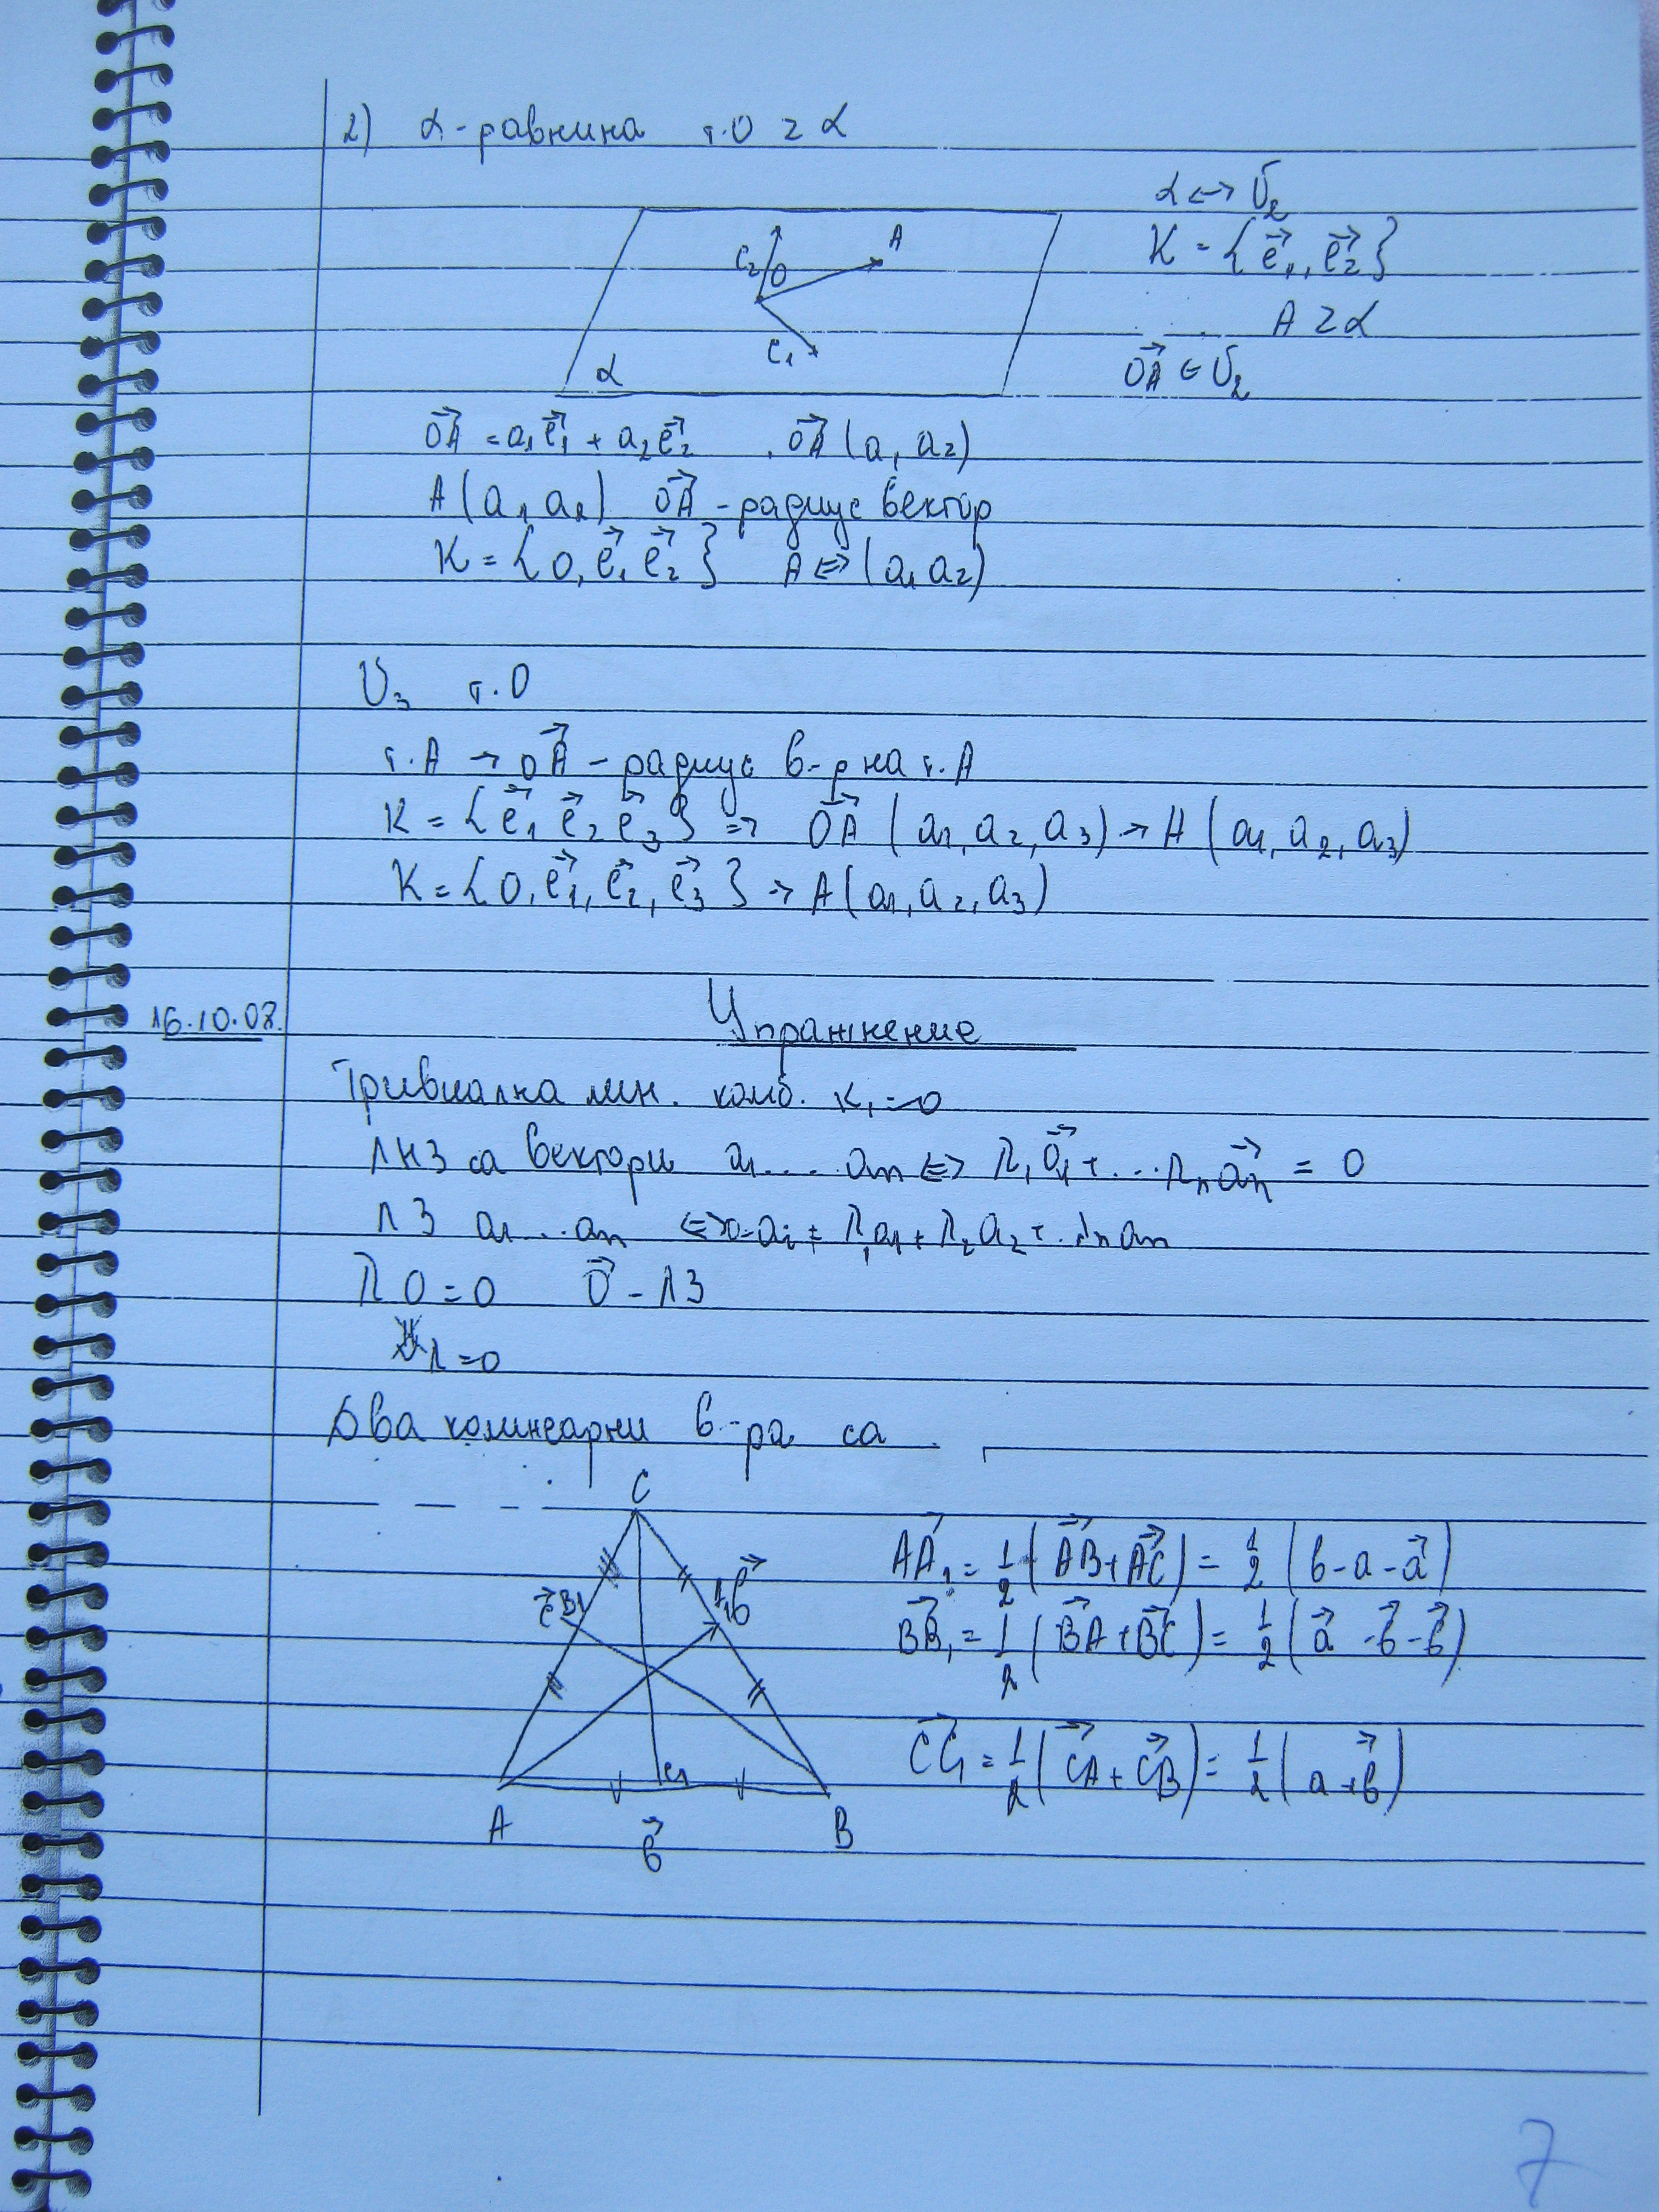 2) α - равнина т.O Z α
α ↔ U₂
K = {e⃗₁, e⃗₂}
A Z α
OA⃗ ∈ U₂
e₂ O A
e₁
α
OA⃗ = a₁e⃗₁ + a₂e⃗₂ OA⃗ (a₁ a₂)
A (a₁ a₂) OA⃗ - радиус вектор
K = {O, e⃗₁ e⃗₂} A ⇔ (a₁ a₂)
U₃ т.O
т.A → OA⃗ - радиус в-р на т.A
K = {e⃗₁ e⃗₂ e⃗₃} ⇒ OA⃗ (a₁, a₂, a₃) → A (a₁, a₂, a₃)
K = {O, e⃗₁, e⃗₂, e⃗₃} → A (a₁, a₂, a₃)
16.10.08. Упражнение
Тривиална лин. комб. K₁ = 0
ЛНЗ са вектори a₁ .... aₙ ⇔ λ₁a⃗₁ + ... λₙa⃗ₙ = 0
ЛЗ a₁ ... aₙ ⇔ aᵢ = λ₁a₁ + λ₂a₂ + .. λₙaₙ
λ 0 = 0 0⃗ - ЛЗ
λ = 0
Два колинеарни в-ра са
C
B₁ A₁ b⃗
A C₁ B
b⃗
AA⃗₁ = 1/2 (AB⃗ + AC⃗) = 1/2 (b - a - a⃗)
BB⃗₁ = 1/2 (BA⃗ + BC⃗) = 1/2 (a⃗ - b⃗ - b⃗)
CC⃗₁ = 1/2 (CA⃗ + CB⃗) = 1/2 (a + b⃗)
7